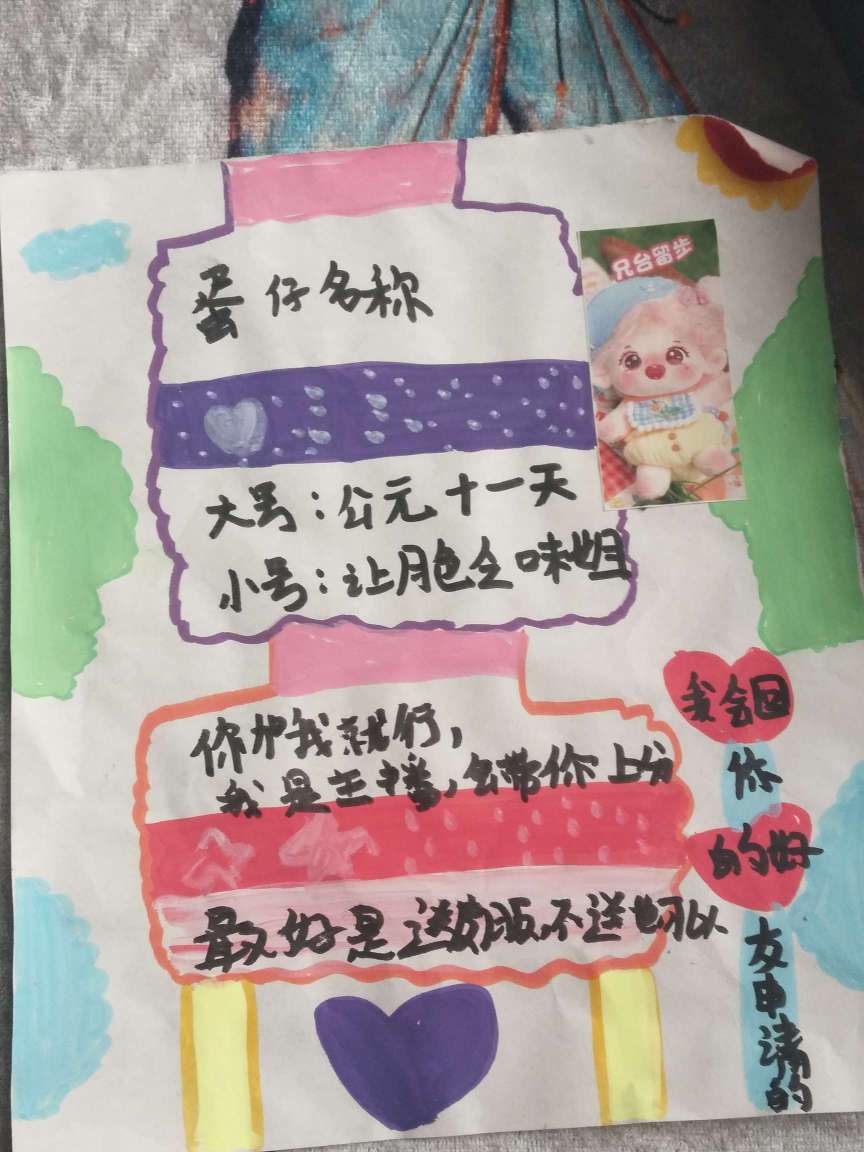 兄台留步
蛋仔名称
大号：公元十一天
小号：让月色全味姐
你加我就行，
我是主播，会带你上分
最好是送皮肤，不送也可以
我会回
你
的好
友申请的